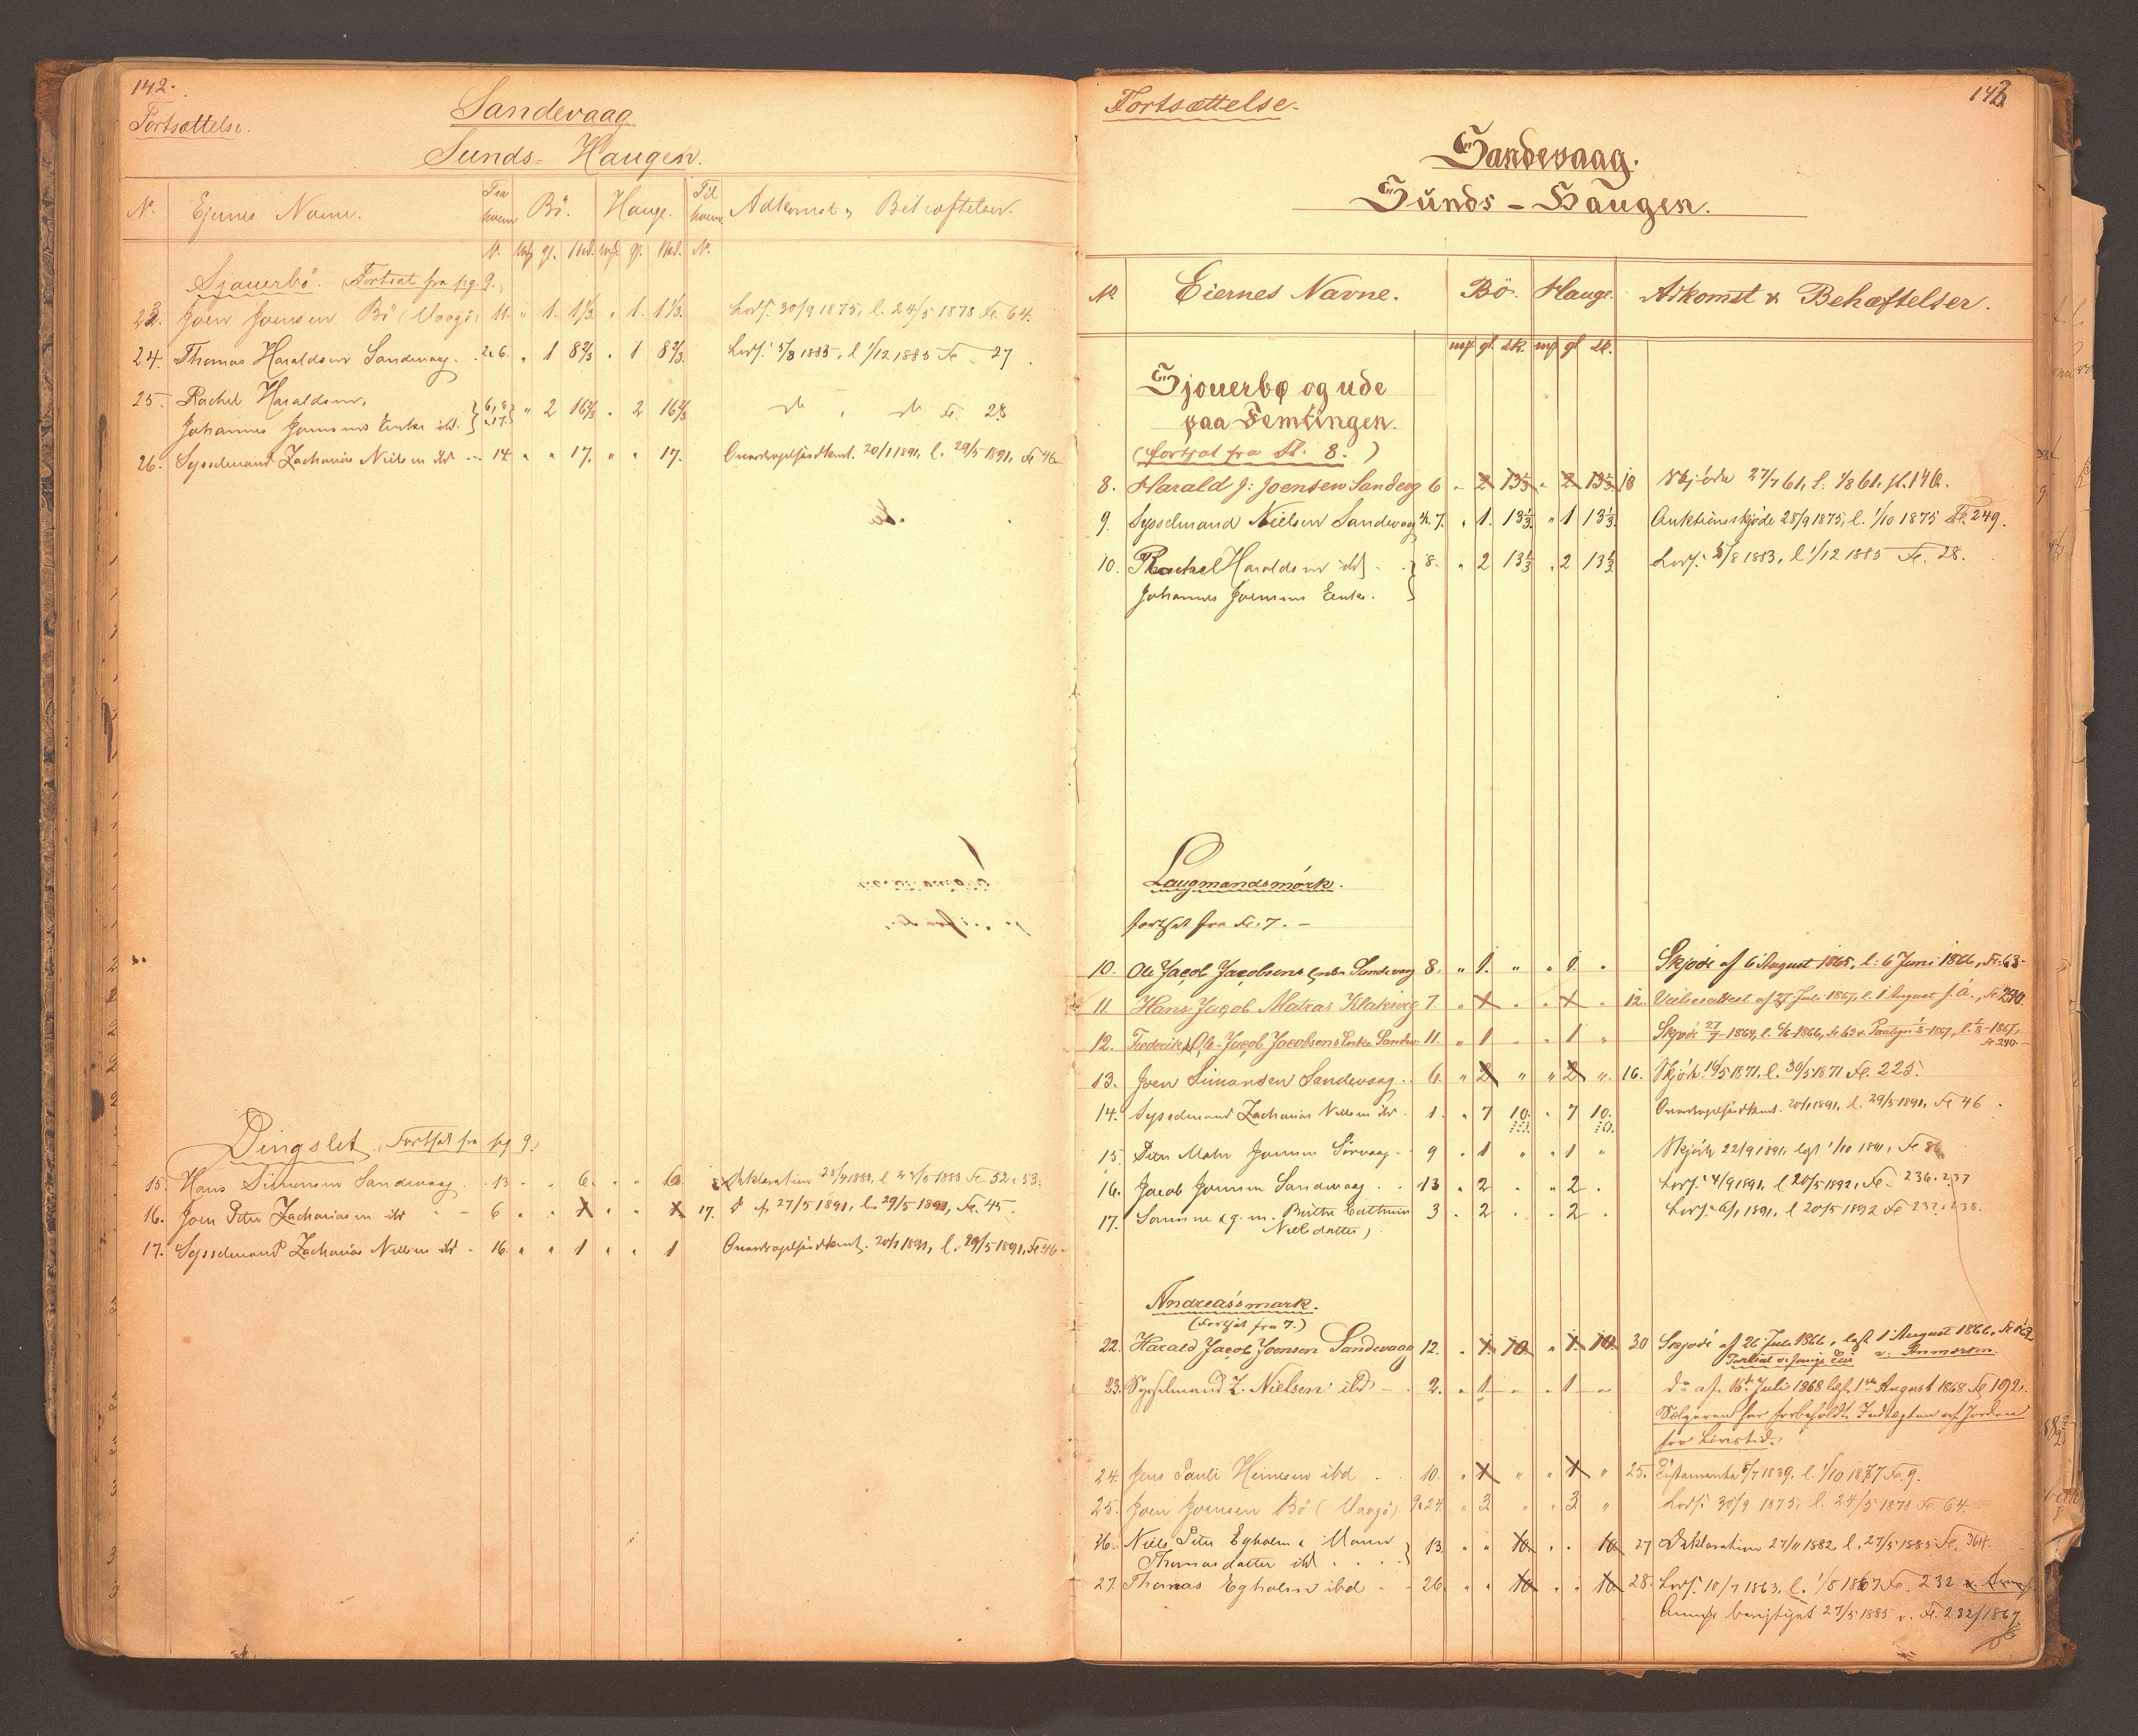 142.
Fortsættelse.
Sandevaag
Sunds-Haugen.
No. Ejernes Navne. Fra havn Bö. Hauge. Til havn Adkomst & Behæftelser.
N. mf gl. Skd. mf. gl. Skd. N.
Sjouerbö. (Fortsat fra pg. 9.)
23. Joen Joensen Bö (Vaagö) 11. " 1. 1⅓. " 1. 1⅓. Lovf. 30/9 1875, l. 24/5 1878 Fe. 64.
24. Thomas Haraldsen Sandevaag. 2&6. " 1 8⅔ " 1 8⅔ Lovf. 5/8 1885, l 1/12 1885 Fe 27
25. Rachel Haraldsen,
Johannes Joensens Enke ibd. 6, 8 & 17. " 2 16⅔ " 2 16⅔ do " do Fe. 28
26. Sysselmand Zacharias Nielsen ibd 14 " " 17. " " 17. 20/1 1891, l. 29/5 1891, Fe 46
Dingslet. Fortsat fra pg 9.
15. Hans Simonsen Sandevaag. 13 " " 6. " " 6. Deklaration 25/4 1882, l 23/5 1883 Fe 52 & 53.
16. Joen Peter Zachariasen ibd 6 " " 1 " " 1 17. D af 27/5 1891, l. 29/5 1891, Fe. 45.
17. Sysselmand Zacharias Nielsen ibd 16. " " 1 " " 1 20/1 1891, l. 29/5 1891, Fe 46
Fortsættelse.
143
Sandevaag.
Sunds-Haugen.
No Eiernes Navne. Bö. Hauge. Adkomst & Behæftelser.
mf gl. Sk. mf gl Sk.
Sjouerbø og ude
paa Femtingen.
(fortsat fra Fl. 8.)
8. Harald J: Joensen Sandevg 6 " 2 13⅓ " 2 13⅓ 18 Skjöde 27/7 61, l. 1/8 61, fl. 140.
9. Sysselmand Nielsen Sandevaag 7. " 1. 13⅓ " 1 13⅓ Auktionsskjöde 28/9 1875, l. 1/10 1875 Fe. 249.
10. Rachel Haraldsen ibd 8. " 2 13⅓ " 2 13⅓ Lovf. 5/8 1883, l 1/12 1885 Fe. 28.
Johannes Joensens Enke.
Laugmandsmørk.
fortsat fra Fe. 7.
10. Ole Jacob Jacobsens Enke Sandevaag 8. " 1. " " 1. " Skjøde af 6 August 1865, l. 6 Juni 1866, Fe. 63
11. Hans Jacob Matras Klaksvig 7. " 1 " " 1 " 12. af 27 Juli 1867, l. 1 August s. A., Fe 240.
12. Frederik, Ole-Jacob Jacobsens Enke Sandev. 11. " 1 " " 1 " Skjøde 27/7 1864, l. 6/6 1866, Fe 63 1/8 1867, l. 1/8 1867,
Fe 240.
13. Joen Simonsen Sandevaag. 6. " 2 " " 2 " 16. Skjöde 19/5 1871, l. 30/5 1871 Fe. 225.
14. Sysselmand Zacharias Nielsen ibd 1. " 7 10. " 7 10. 20/1 1891, l. 29/5 1891, Fe 46
15. Peter Mohr Joensen Sörvaag 9 " 1 " " 1 " Skjöde 22/9 1891, lyst 1/10 1891, Fe 86
16. Jacob Joensen Sandevaag 13 " 2 " " 2 " Lovf. 4/9 1891, l 20/5 1892, Fe 236 & 237
17. g. m. Birthe Cathrine 3 " 2 " " 2 " Lovf. 6/1 1891, l 20/5 1892 Fe 237 & 238.
Nielsdatter)
Andreasmørk.
(Fortsat fra 7.)
22. Harald Jacob Joensen Sandevaag 12. " 1. 10. " 1. 10. 30 Skjøde af 26 Juli 1866, lyst 1 August 1866, Fe 162
v. Anmærkn.
23. Sysselmand Z. Nielsen ibd 2. " 1 " " 1 " do af 16 Juli 1868 lyst 1ste August 1868 Fe 192.
Sælgeren har forbeholdt Indtægten af Jorden
for Livstid.
24. Jens Pauli Heinesen ibd 10. " 1 " " 1 " 25. Testamente 5/7 1839, l. 1/10 1877 Fe. 9.
25. Joen Joensen Bö (Vaagö) 9&24. " 3 " " 3 " Lovf. 30/9 1875, l. 24/5 1878 Fe 64.
26. Niels Peter Egholm & Maren
Thomasdatter ibd 13. " " 10. " " 10. 27 Deklaration 27/11 1882 l. 27/5 1885 Fe. 364.
27. Thomas Egholm ibd 26. " " 10 " " 10. 28. Lovf. 10/7 1863, l. 1/8 1867 Fe. 232
berigtiget 27/5 1885 v. Fe. 232/1867.